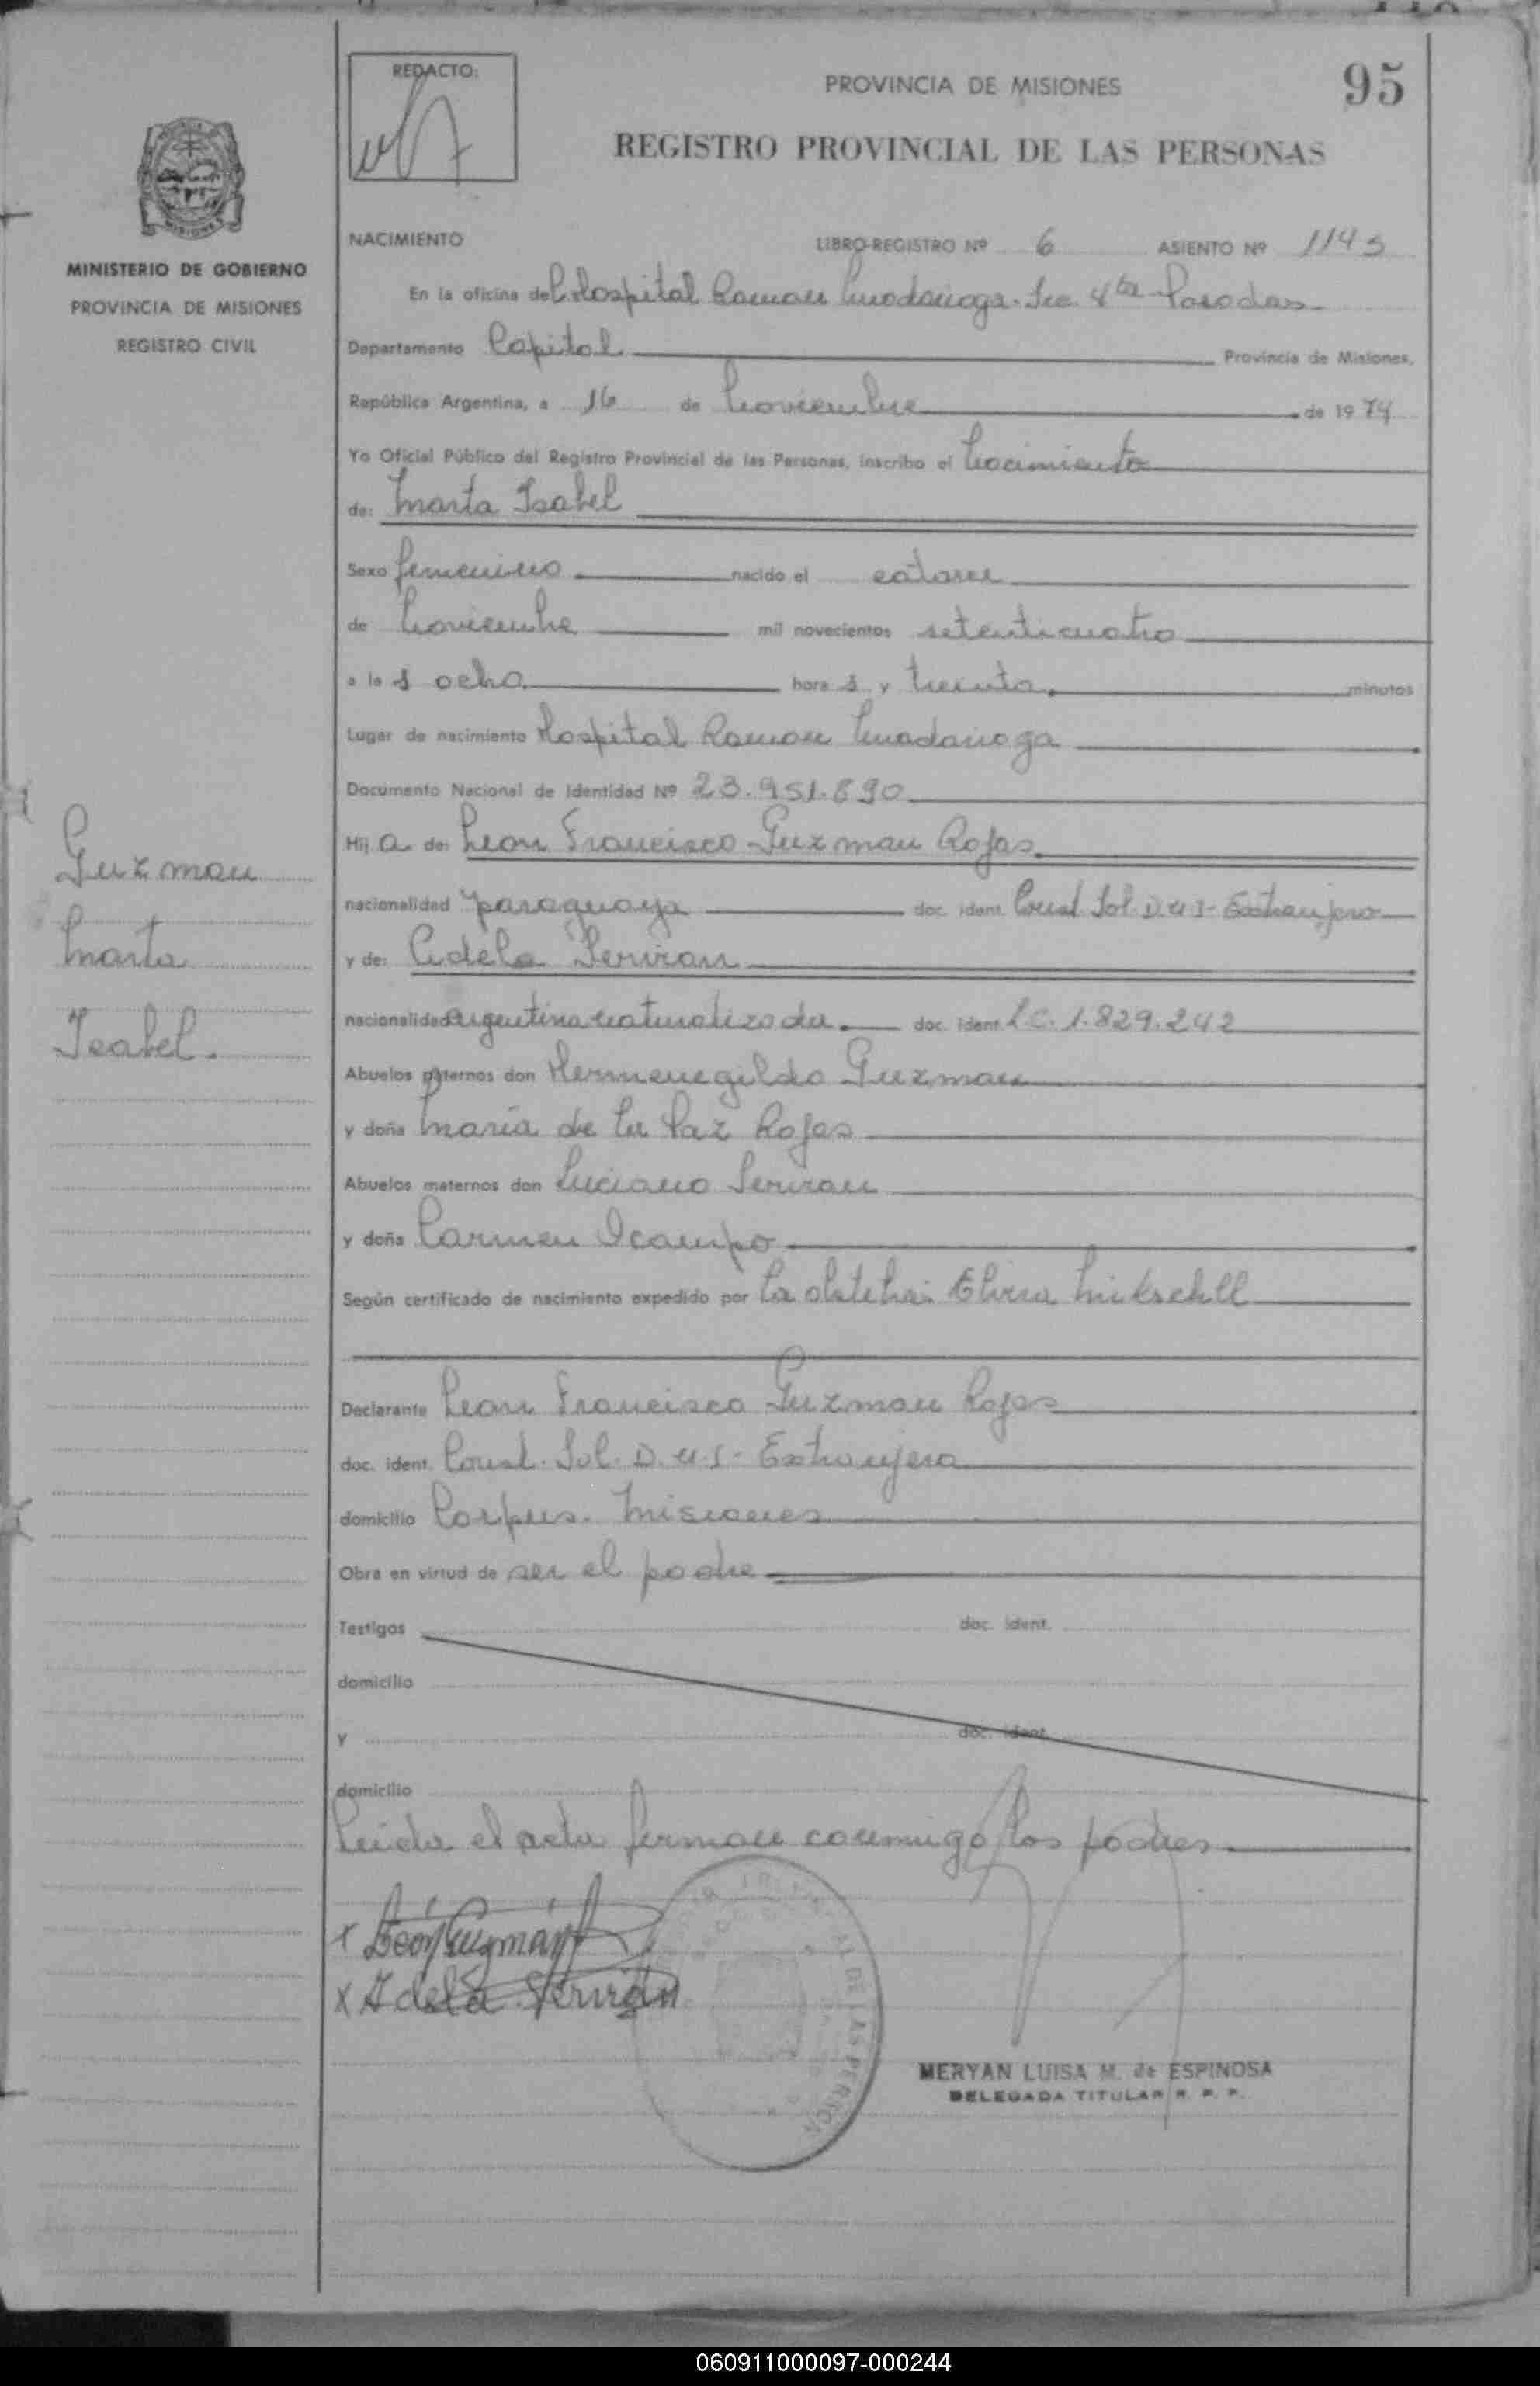 95
REDACTO:
PROVINCIA DE MISIONES
REGISTRO PROVINCIAL DE LAS PERSONAS
MINISTERIO DE GOBIERNO
PROVINCIA DE MISIONES
REGISTRO CIVIL
NACIMIENTO LIBRO-REGISTRO Nº 6 ASIENTO Nº 1145
En la oficina del Hospital Ramon Madariaga. Sec. 4ta Posadas
Departamento Capital Provincia de Misiones,
República Argentina, a 16 de Noviembre de 1974
Yo Oficial Público del Registro Provincial de las Personas, inscribo el Nacimiento
de: Marta Isabel
Sexo femenino nacido el catorce
de Noviembre mil novecientos setenticuatro
a las ocho horas y treinta minutos
Lugar de nacimiento Hospital Ramon Madariaga
Documento Nacional de Identidad Nº 23.951.890
Hija de: Leon Francisco Guzman Rojas
nacionalidad paraguaya doc. ident. Const. Sol. D.U.I- Extranjero
y de: Adela Servian
nacionalidad argentina naturalizada doc. ident. L.C. 1.829.242
Abuelos paternos don Hermenegildo Guzman
y doña María de La Paz Rojas
Abuelos maternos don Luciano Servian
y doña Carmen Ocampo
Según certificado de nacimiento expedido por La obstetra: Elvira
Declarante Leon Francisco Guzman Rojas
doc. ident. Const. Sol. D.U.I- Extranjera
domicilio Corpus. Misiones
Obra en virtud de ser el padre
Testigos doc. ident.
domicilio
y doc. ident.
domicilio
Leida el acta firman conmigo los padres
x León Guzmán
x Adela Servián
MERYAN LUISA M. de ESPINOSA
DELEGADA TITULAR R. P. P.
Guzman
Marta
Isabel.
060911000097-000244